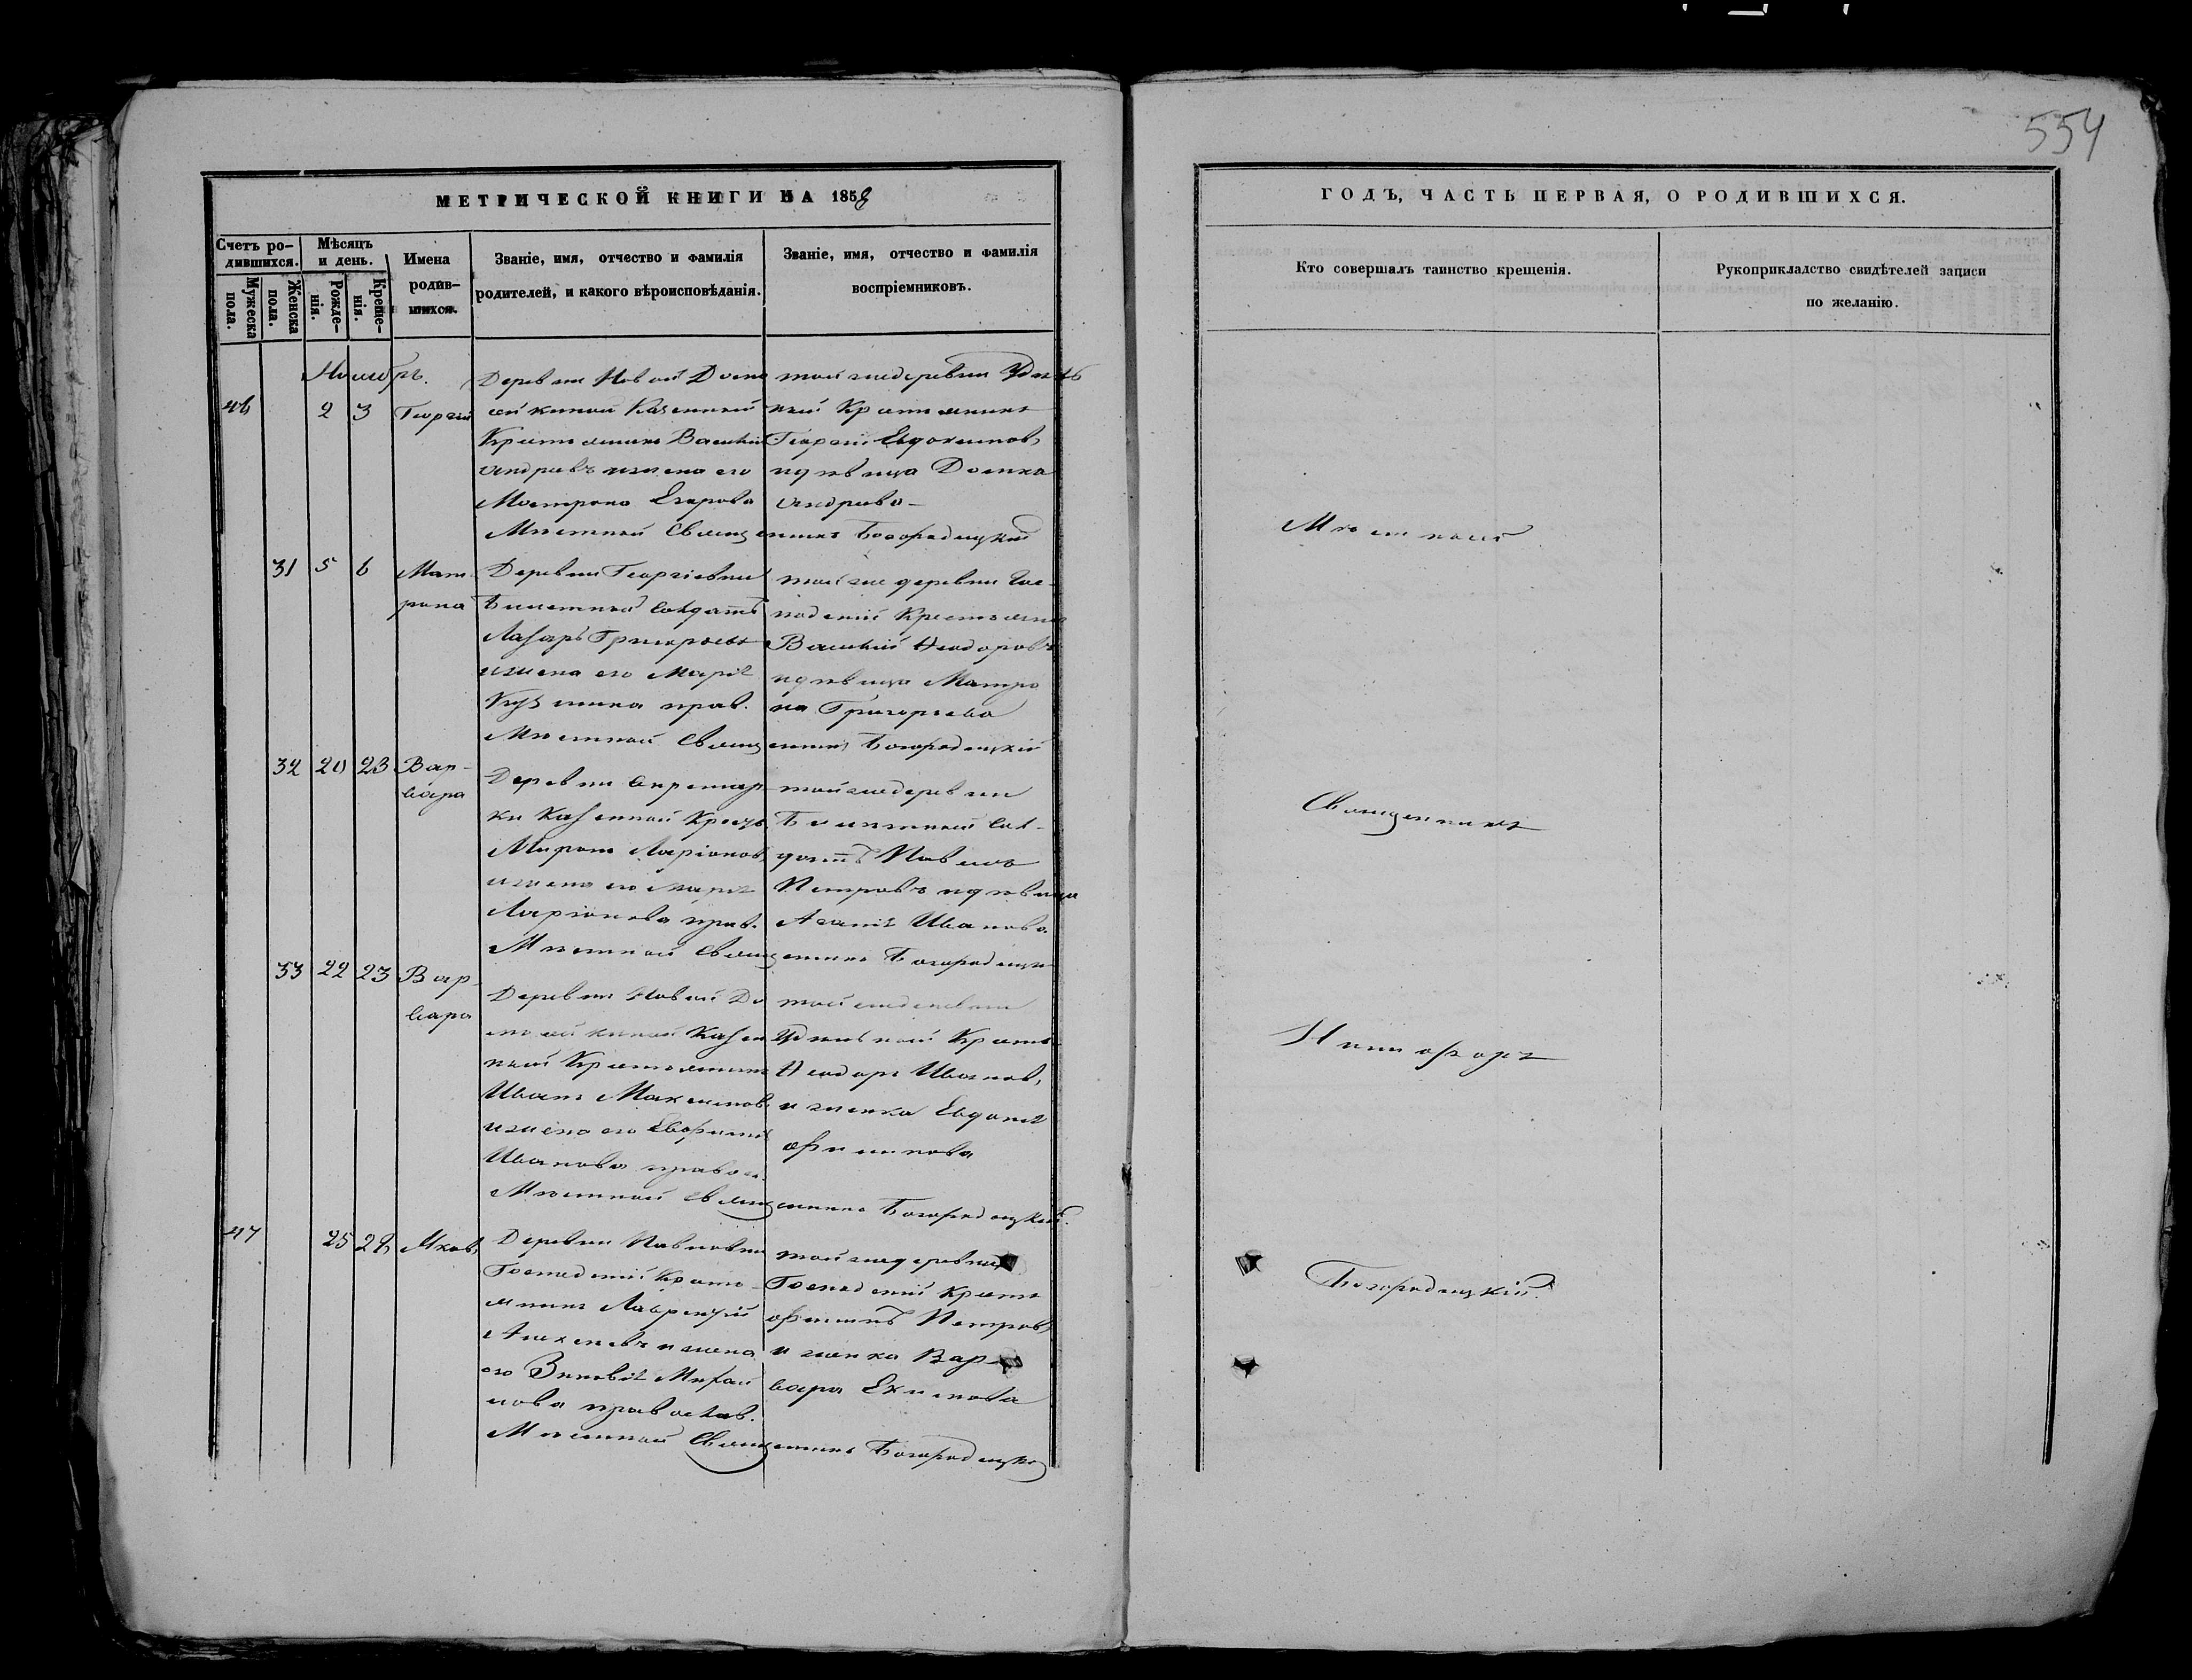 554
МЕТРИЧЕСКОЙ КНИГИ НА 1858
ГОДЪ, ЧАСТЬ ПЕРВАЯ, О РОДИВШИХСЯ.
Счетъ ро-
дившихся.
Мужеска
пола.
Женска
пола.
Мѣсяцъ
и день.
Рожде-
нія.
Креще-
нія.
Имена
родив-
шихся.
Званіе, имя, отчество и фамилія
родителей, и какого вѣроисповѣданія.
Званіе, имя, отчество и фамилія
воспріемниковъ.
Кто совершалъ таинство крещенія.
Рукоприкладство свидѣтелей записи
по желанію.
Ноябрь.
46 2 3 Георгій
Деревни Новой
Казенный
Крестьянинъ Василій
Андреевъ и жена его
Матрона Егорова
той же деревни
Крестьянинъ
Георгій Евдокимовъ
и дѣвица Домна
Андреева
Мѣстной Священникъ Богородицкій
31 5 6 Мат-
рона
Деревни Георгіевки
Билетной Солдатъ
Лазарь Григорьевъ
и жена его Марія
Кузмина прав.
той же деревни Гос-
подскій Крестьянинъ
Василій Ѳеодоровъ
и дѣвица Матро
на Григорьева
Мѣстной Священникъ Богородицкій
32 20 23 Вар-
вара
Деревни
ки Казенной Крест.
Миронъ Ларіоновъ
и жена его Марія
Ларіонова прав.
той же деревни
Билетный Сол-
датъ Павелъ
Петровъ и дѣвица
Агаѳія Иванова
Мѣстной Священникъ Богородицкій
33 22 23 Вар-
вара
Деревни Новой До
Казен
ный Крестьянинъ
Иванъ Максимовъ
и жена его Евфимія
Иванова правос.
той же деревни
Удѣльной Крест.
Ѳеодоръ Ивановъ
и женка Евдокія
Филипова
Мѣстной Священникъ Богородицкій.
47 25 28 Яковъ
Деревни Павловки
Господскій Кресть-
янинъ Лаврентій
Алексеевъ и жена
его Зиновія Михай
лова православ.
той же деревни
Господскій Кресть
Филипъ Петровъ
и женка Вар-
вара Екимова
Мѣстной Священникъ Богородицкій
Мѣстной
Священникъ
Никифоръ
Богородицкій.